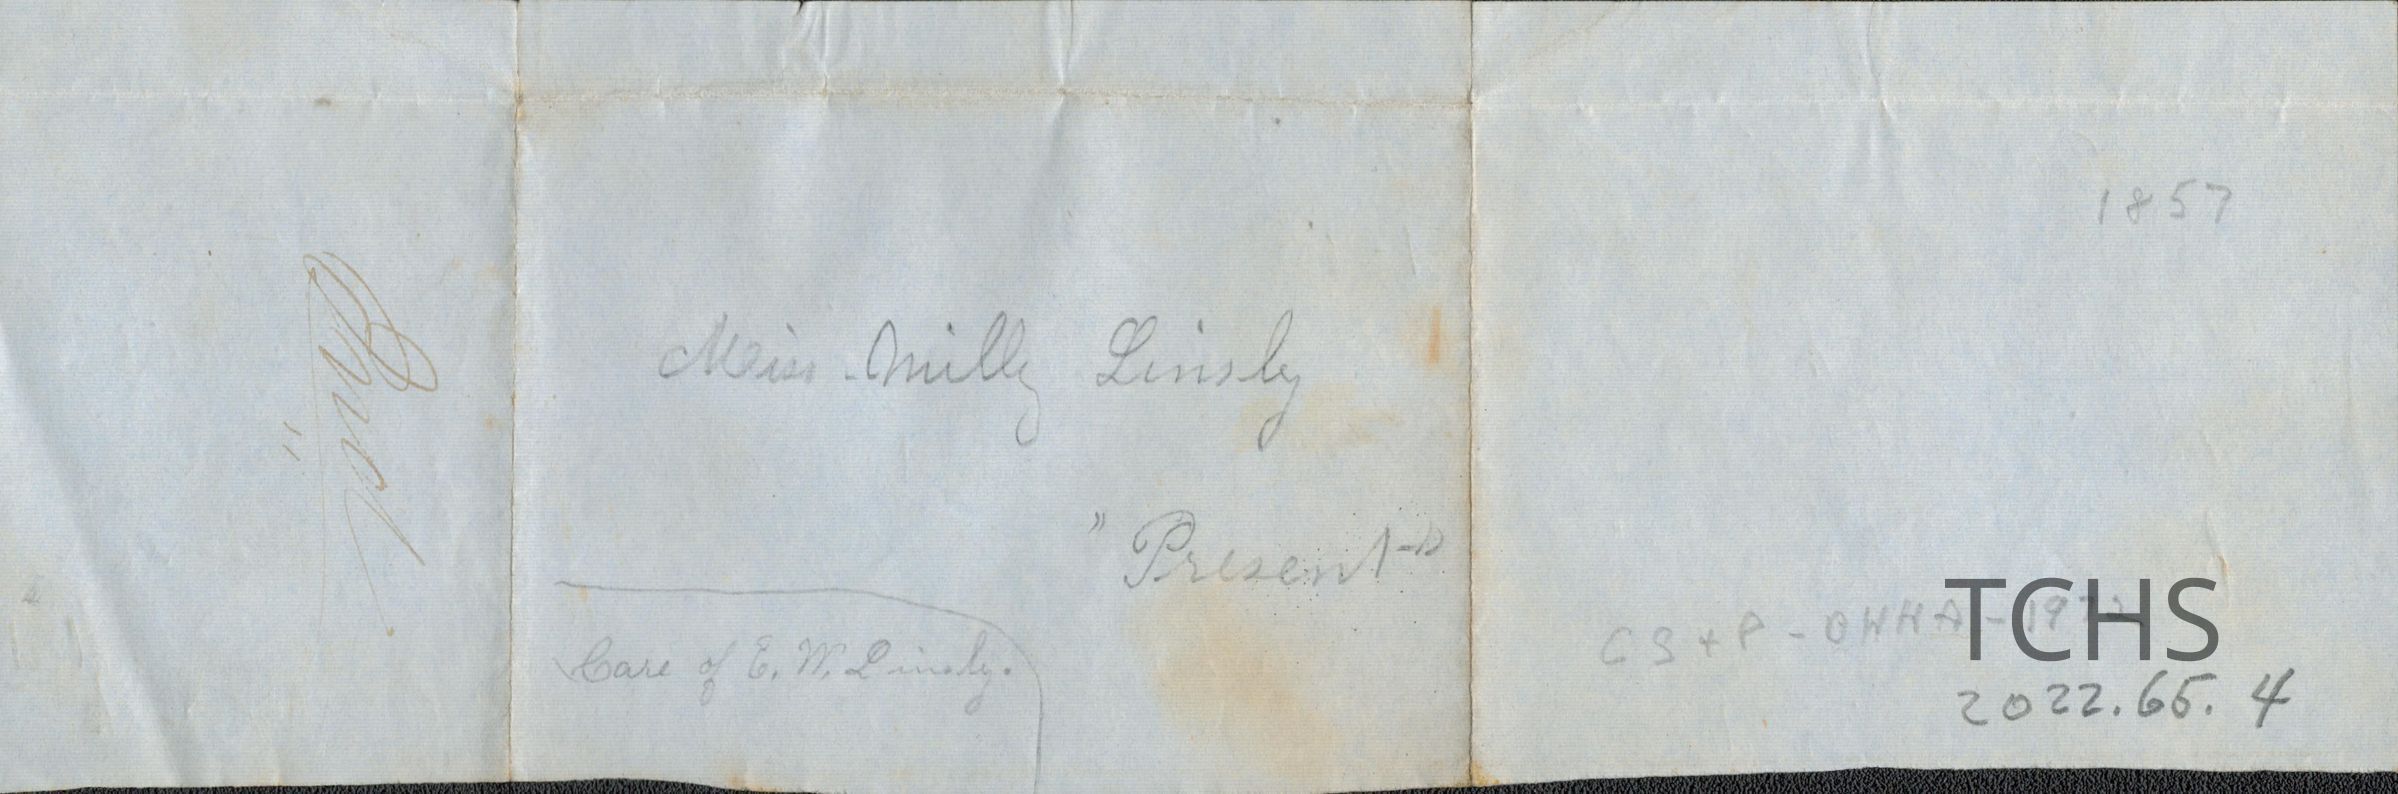 Paid
Miss Milly Linsly
"Present"
Care of E. W. Linsly.
1857
CS + P - OHHA - 1972
TCHS
2022.65.4